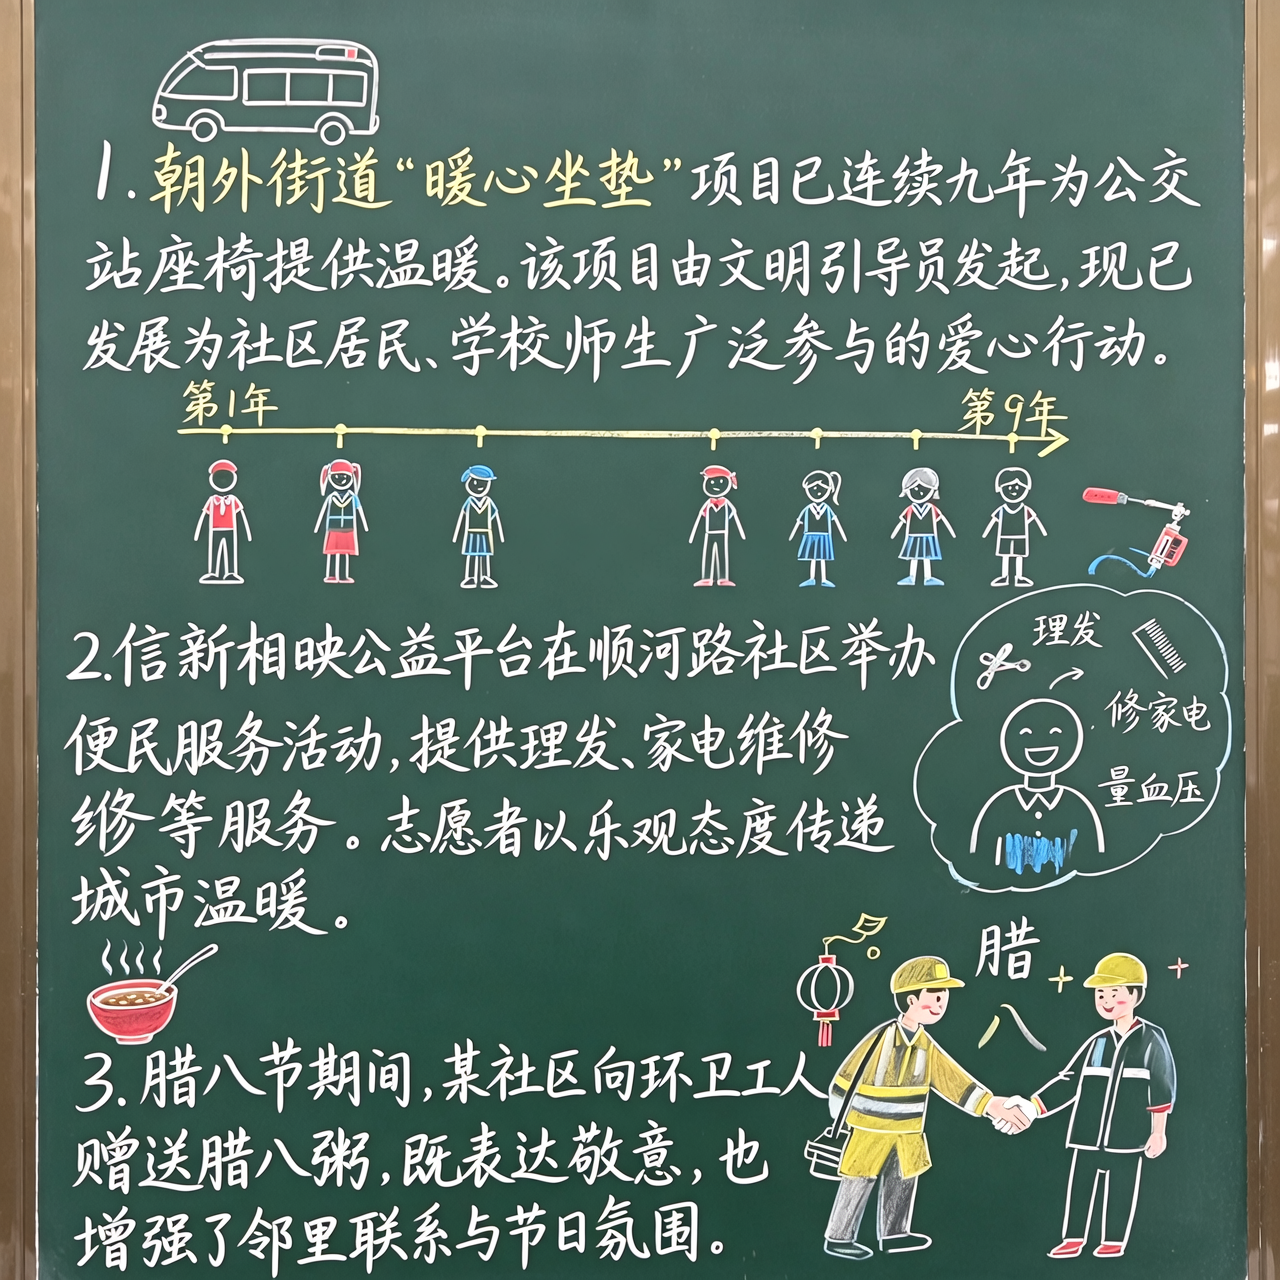 1.朝外街道“暖心坐垫”项目已连续九年为公交
站座椅提供温暖。该项目由文明引导员发起,现已
发展为社区居民、学校师生广泛参与的爱心行动。
第1年
第9年
2.信新相映公益平台在顺河路社区举办
便民服务活动,提供理发、家电维修
修等服务。志愿者以乐观态度传递
城市温暖。
理发
修家电
量血压
腊
八
3.腊八节期间,某社区向环卫工人
赠送腊八粥,既表达敬意,也
增强了邻里联系与节日氛围。